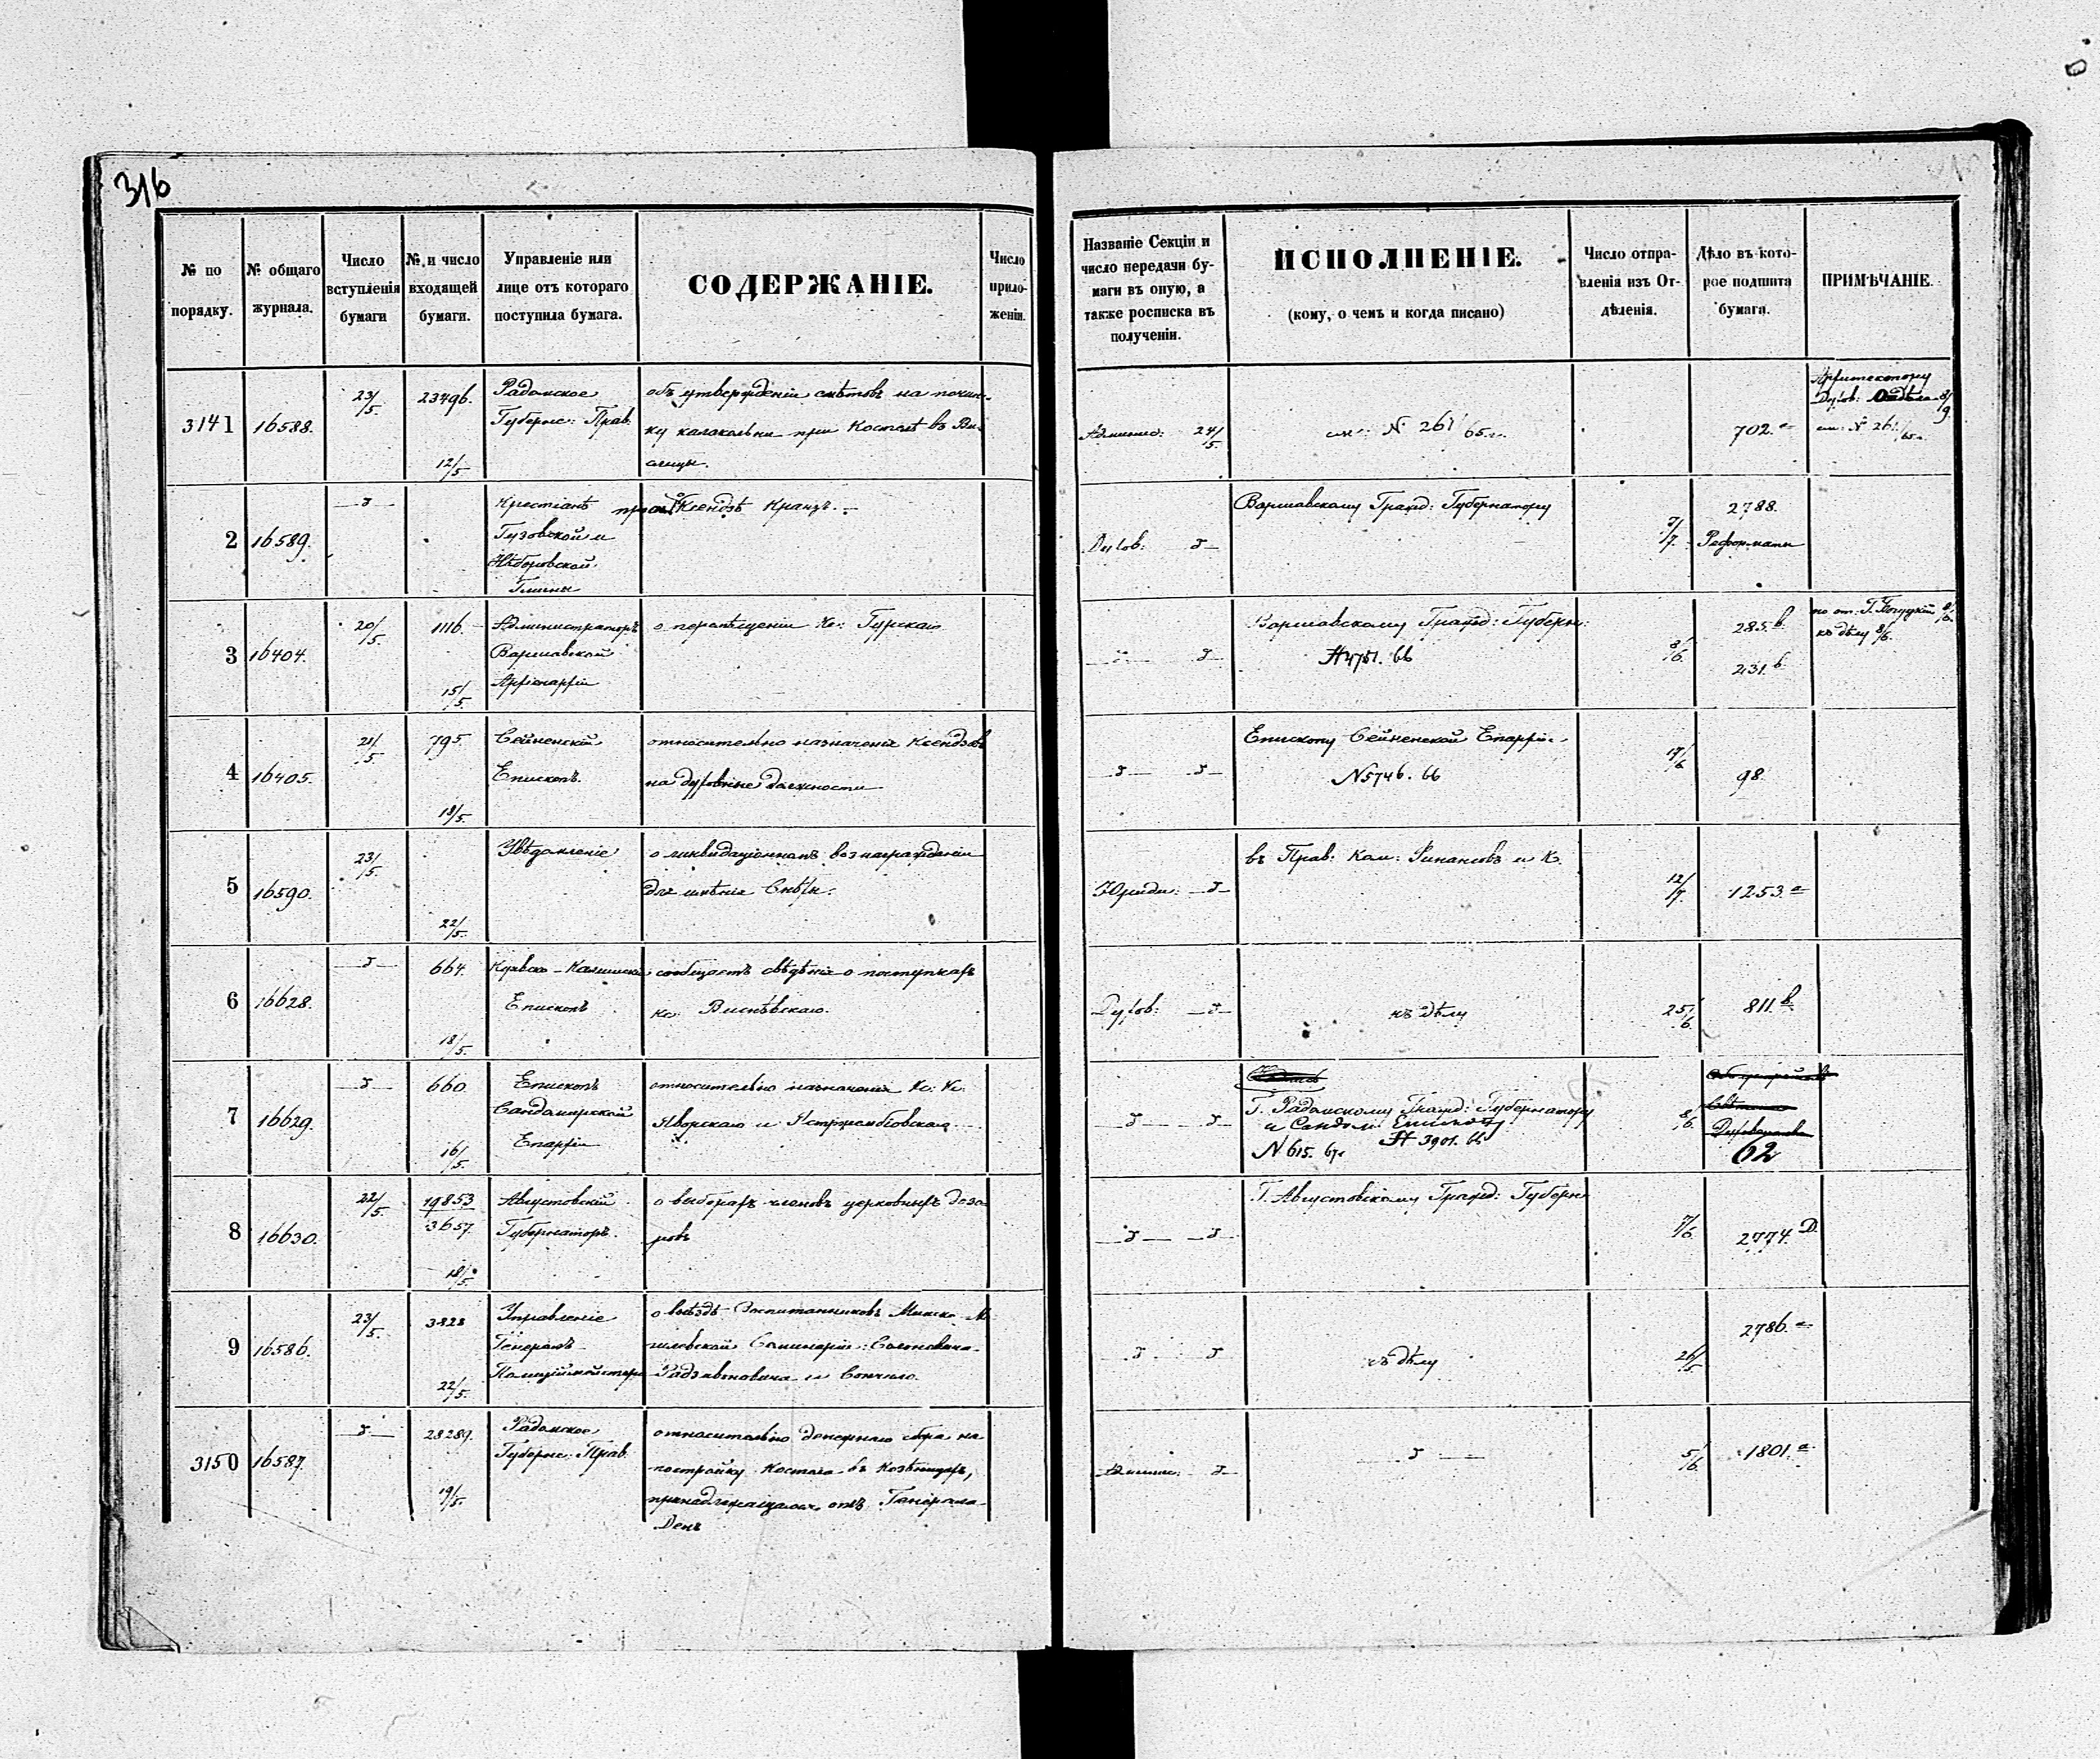 316
№ по порядку.
№ общаго журнала.
Число вступленія бумаги
№ и число входящей бумаги.
Управленіе или лице отъ котораго поступила бумага.
СОДЕРЖАНІЕ.
Число прило-женій.
Названіе Секціи и число передачи бу-маги въ оную, а также росписка въ полученіи.
ИСПОЛНЕНІЕ.
(кому, о чемъ и когда писано)
Число отпра-вленія изъ От-дѣленія.
Дѣло въ кото-рое подшита бумага.
ПРИМѢЧАНІЕ.
3141 16588. 23/5. 23496. 12/5.
Радомское
Губернс: Прав.
объ утвержденіи смѣтовъ на почин-
ку калакольни при Костелѣ въ Ви-
слицы.
Админис: 24/5.
см: № 261/65 г.
702.а
Архитектору
Духов: Отдѣла 8/9.
см: № 261/65 г.
2 16589.
Крестіанѣ
Гузовской и
Гмины
Ксендзѣ
Духов:
Варшавскому Гражд: Губернатору
7/7.
2788.
Реформаты
3 16404. 20/5. 1116. 15/5.
Администраторъ
Варшавской
Архіепархіи
о перемѣщеніи Кс: Гурскаго
Варшавскому Гражд: Губерн:
№ 4751. 66
8/6.
285.в
231.б
къ дѣлу 8/6.
4 16405. 21/5. 795. 18/5.
Сейненскій
Епископъ.
относительно назначенія Ксендзовъ
на духовные должности
Епископу Сейненской Епархіи
№ 5746. 66
17/6
98.
5 16590. 23/5. 22/5.
Увѣдомленіе
о ликвидаціонномъ вознагражденіи
для имѣнія
Юриди:
въ Прав: Ком: Финансовъ и К.
12/7.
1253.а
6 16628. 664. 18/5.
Куявско-Калишскій
Епископъ
сообщаетъ свѣдѣніе о поступкахъ
кс: Виснѣвскаго.
Духов:
къ дѣлу
25/6.
811.в
7 16629. 660. 16/5.
Епископъ
Сандомирской
Епархіи
относительно назначенія Кс: Кс:
Яворскаго и Ястржембовскаго
Г. Радомскому Гражд: Губернатору
и Сандом: Епископу
№ 615. 67 г. № 3901. 66
8/6.
62
8 16630. 22/5. 19853/3657. 18/5.
Августовскій
Губернаторъ.
о выборахъ членовъ церковныхъ дозо-
ровъ
Г. Августовскому Гражд: Губерн:
7/6.
2774.D.
9 16586. 23/5. 3828 22/5.
Управленіе
Генералъ
Полиціймейстера
о выѣздѣ Воспитанниковъ Минско-Мо-
гилевской Семинаріи:
и
къ дѣлу
26/5
2786.а
3150 16587. 28289. 19/5.
Радомское
Губернс: Прав.
относительно денежнаго сбора на
постройку Костела въ Козѣницахъ,
принадлежащаго отъ Генерала
Денъ
Админис:
5/6
1801.а